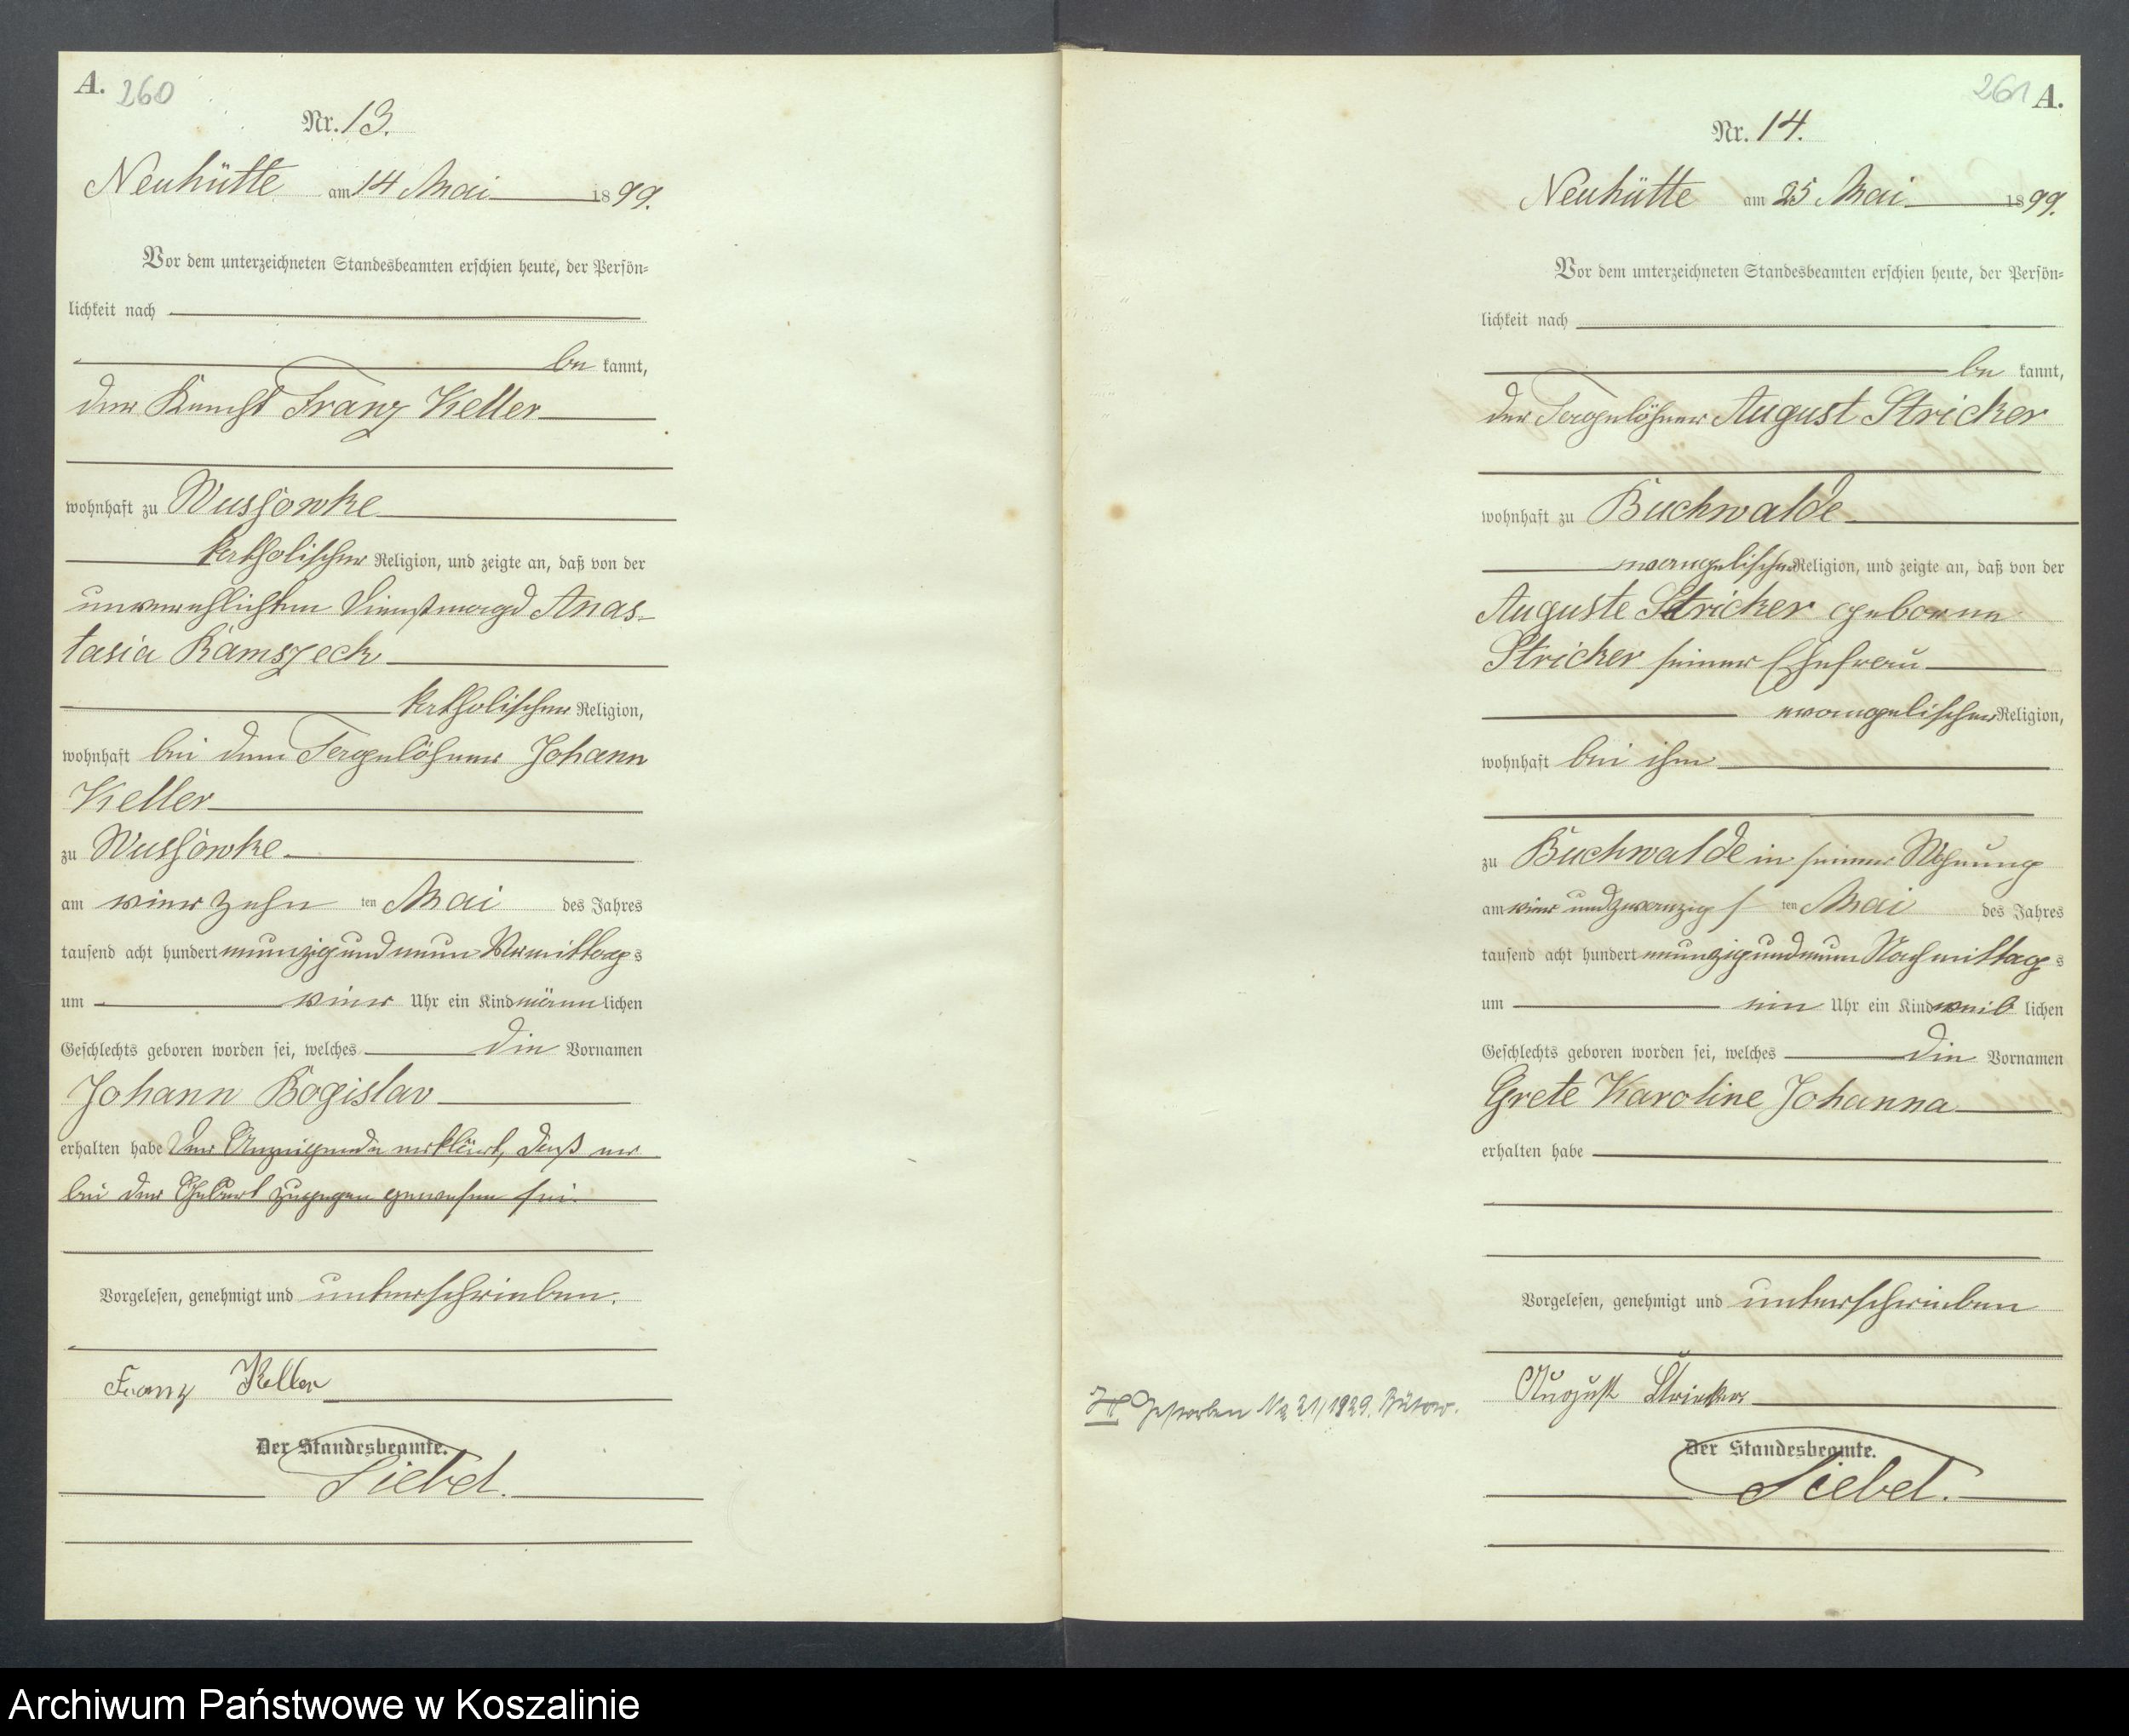 A. 260
Nr. 13.
Neuhütte am 14 Mai 1899.
Vor dem unterzeichneten Standesbeamten erschien heute, der Persön-
lichkeit nach
be kannt,
der Knecht Franz Keller
wohnhaft zu Wussowke
katholischer Religion, und zeigte an, daß von der
unverehlichten Dienstmagd Anas-
tasia Ramszeck
katholischer Religion,
wohnhaft bei dem Tagelöhner Johann
Keller
zu Wussowke
am vierzehn ten Mai des Jahres
tausend acht hundert neunzig und neun Vormittags
um vier Uhr ein Kind männlichen
Geschlechts geboren worden sei, welches die Vornamen
Johann Bogislav
erhalten habe Der Anzeigende erklärt, daß er
bei der Geburt zugegen gewesen sei.
Vorgelesen, genehmigt und unterschrieben.
Franz Keller
Der Standesbeamte.
Siebel.
261 A.
Nr. 14.
Neuhütte am 25 Mai 1899.
Vor dem unterzeichneten Standesbeamten erschien heute, der Persön-
lichkeit nach
be kannt,
der Tagelöhner August Stricker
wohnhaft zu Buchwalde
evangelischer Religion, und zeigte an, daß von der
Auguste Stricker geborene
Stricker seiner Ehefrau
evangelischer Religion,
wohnhaft bei ihm
zu Buchwalde in seiner Wohnung
am vier und zwanzig ten Mai des Jahres
tausend acht hundert neunzig und neun Nachmittags
um ein Uhr ein Kind weib lichen
Geschlechts geboren worden sei, welches die Vornamen
Grete Karoline Johanna
erhalten habe
Vorgelesen, genehmigt und unterschrieben
August Stricker
Gestorben No 21/1929. Bütow.
Der Standesbeamte.
Siebel.
Archiwum Państwowe w Koszalinie